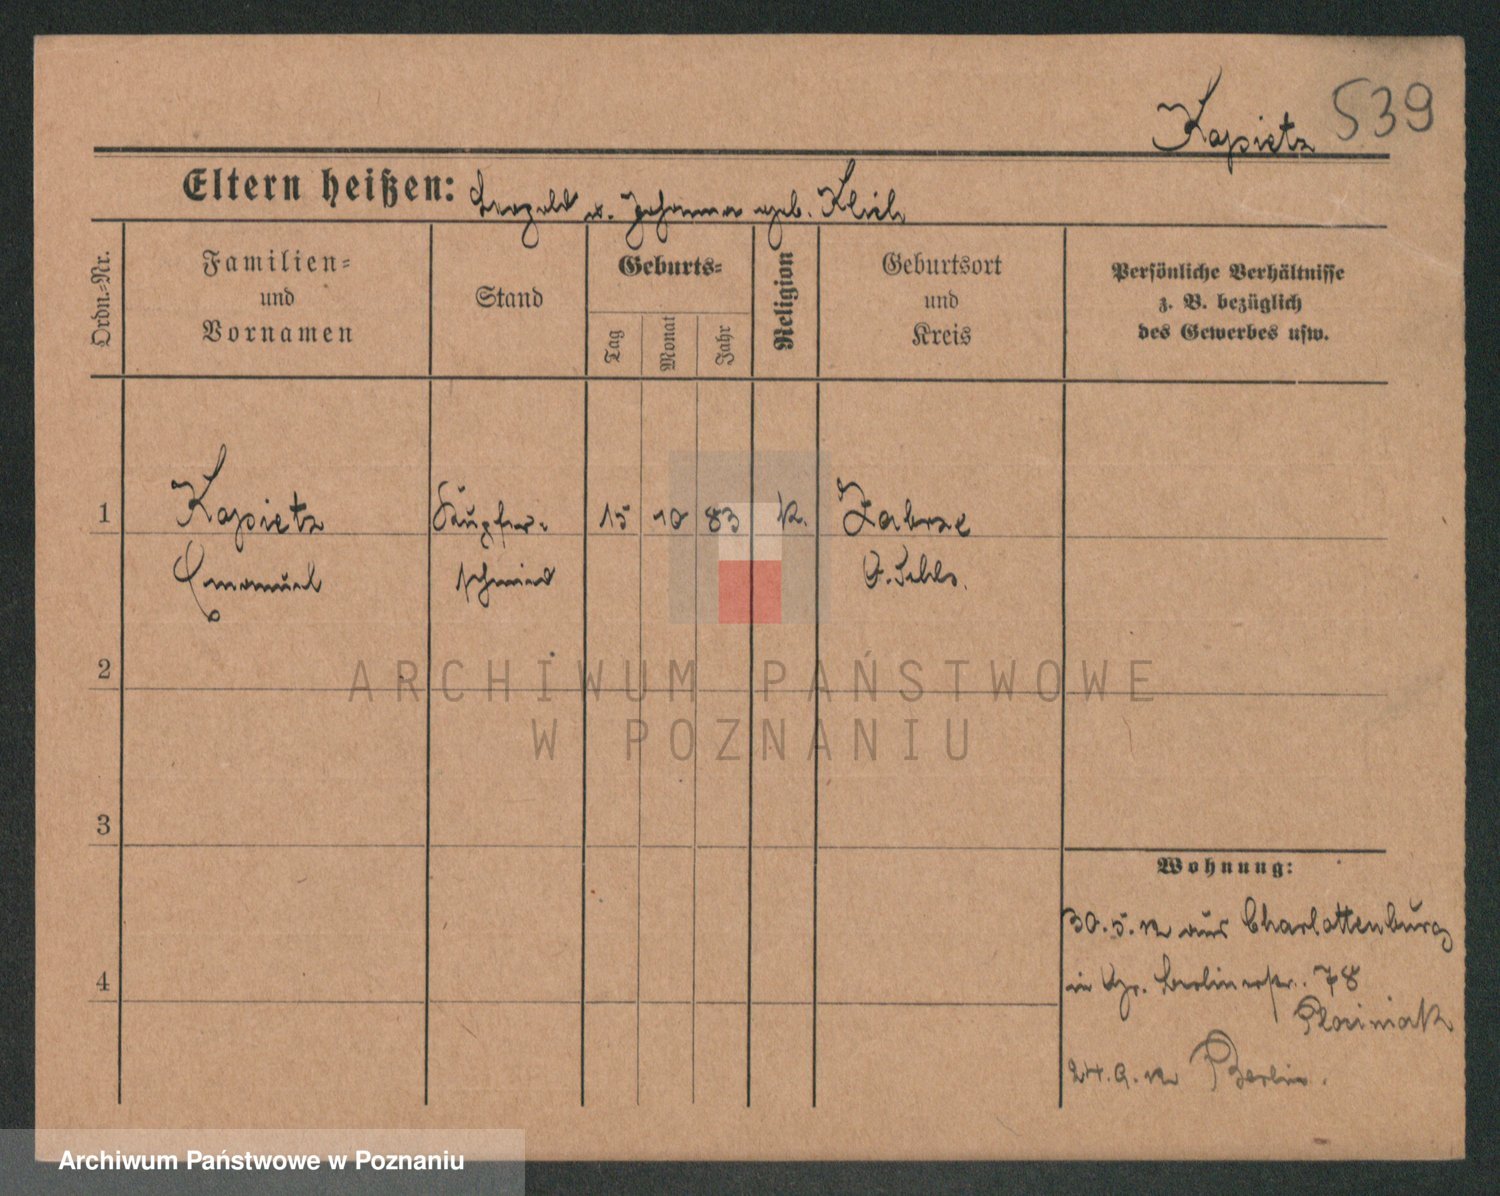 Kapietz 539
Eltern heißen: Leopold u. Johanna geb. Klich
Ordn.-Nr.
Familien-
und
Vornamen
Stand
Geburts-
Tag
Monat
Jahr
Religion
Geburtsort
und
Kreis
Persönliche Verhältnisse
z. B. bezüglich
des Gewerbes usw.
1 Kapietz Kupfer- 15 10 83 k. Zabrze
Emanuel schmied O. Schls.
2
ARCHIWUM PAŃSTWOWE
W POZNANIU
3
Wohnung:
30.5. aus Charlottenburg
4
in Gr. Berlinerstr. 78
24.9. Berlin.
Archiwum Państwowe w Poznaniu